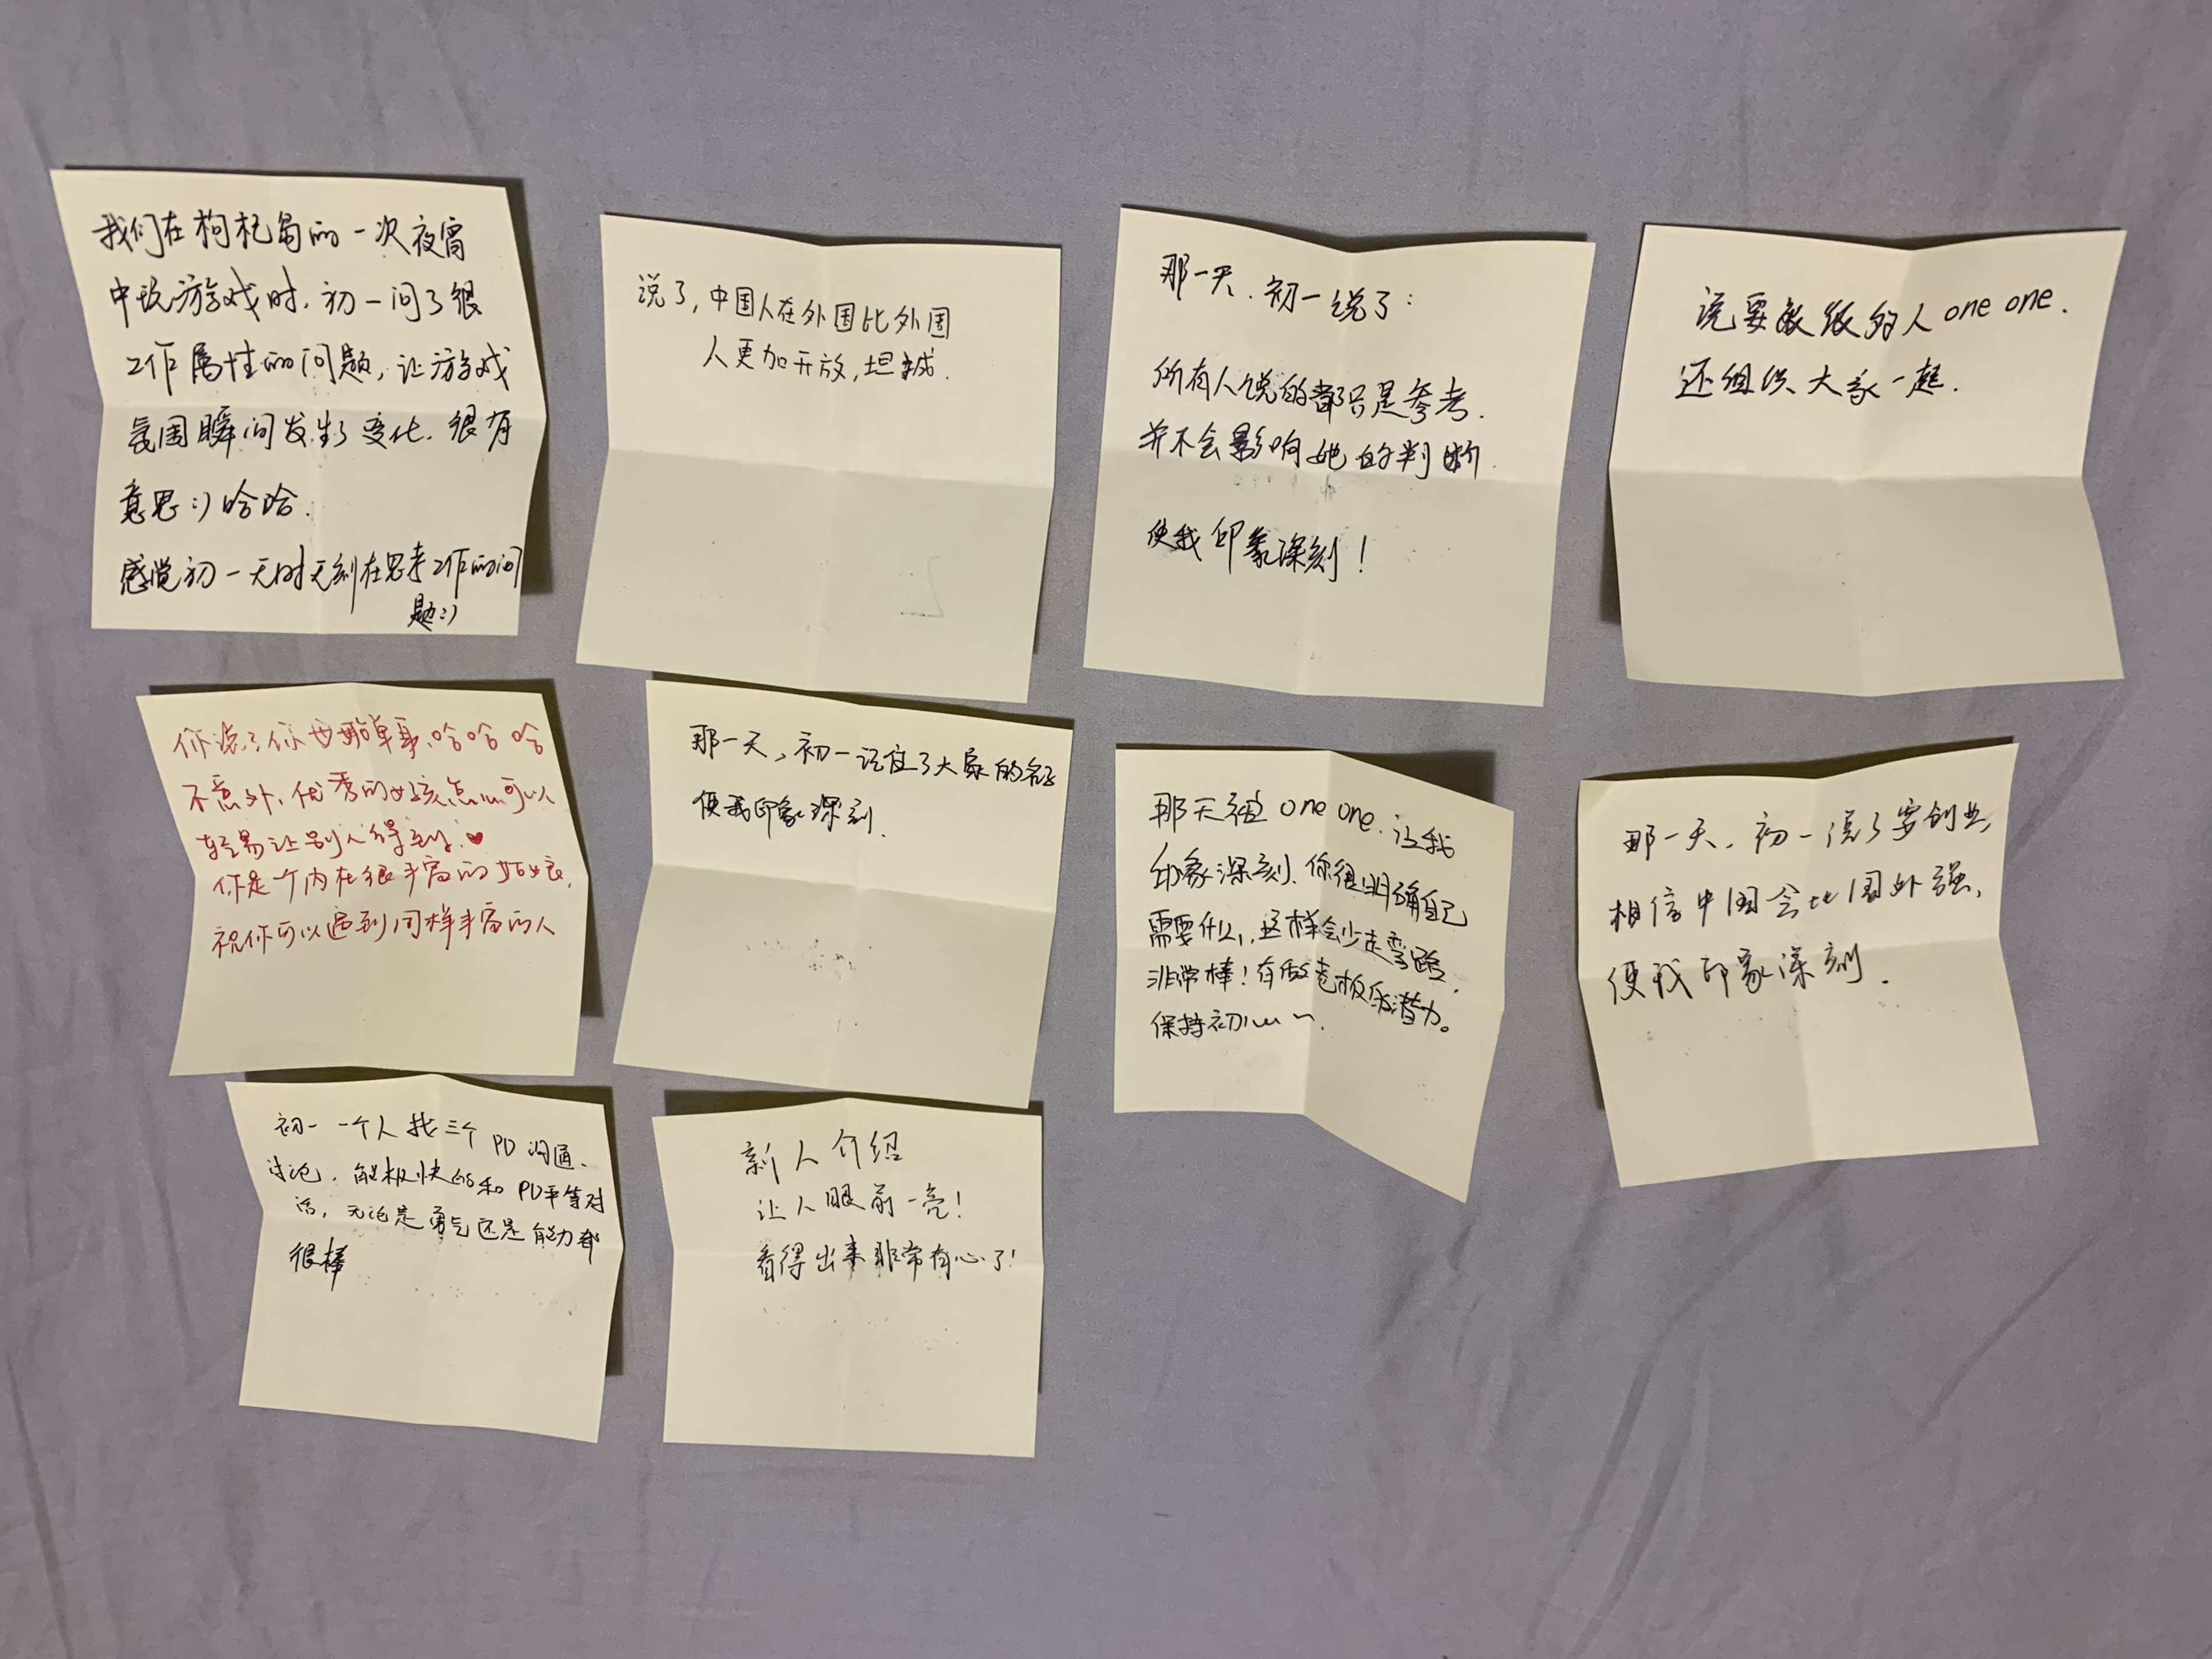 我们在枸杞岛的一次夜宵
中玩游戏时,初一问了很
工作属性的问题,让游戏
氛围瞬间发生了变化.很有
意思:)哈哈.
感觉初一无时无刻在思考工作的问
题:)
说了,中国人在外国比外国
人更加开放,坦诚.
那一天.初一说了:
所有人说的都只是参考.
并不会影响她的判断.
使我印象深刻!
说要敌级的人one one.
还组织大家一起.
你说了你母胎单身,哈哈哈
不意外,优秀的女孩怎么可以
轻易让别人得到.♥
你是一个内在很丰富的姑娘,
祝你可以遇到同样丰富的人
那一天,初一记住了大家的名字
使我印象深刻.
那天被one one.让我
印象深刻.你很明确自己
需要什么,这样会少走弯路.
非常棒!有做老板的潜力。
保持初心~.
那一天.初一说了要创业,
相信中国会比国外强,
使我印象深刻.
初一一个人找三个PD沟通、
讨论,能极快的和PD平等对
话,无论是勇气还是能力都
很棒
新人介绍
让人眼前一亮!
看得出来非常有心了!